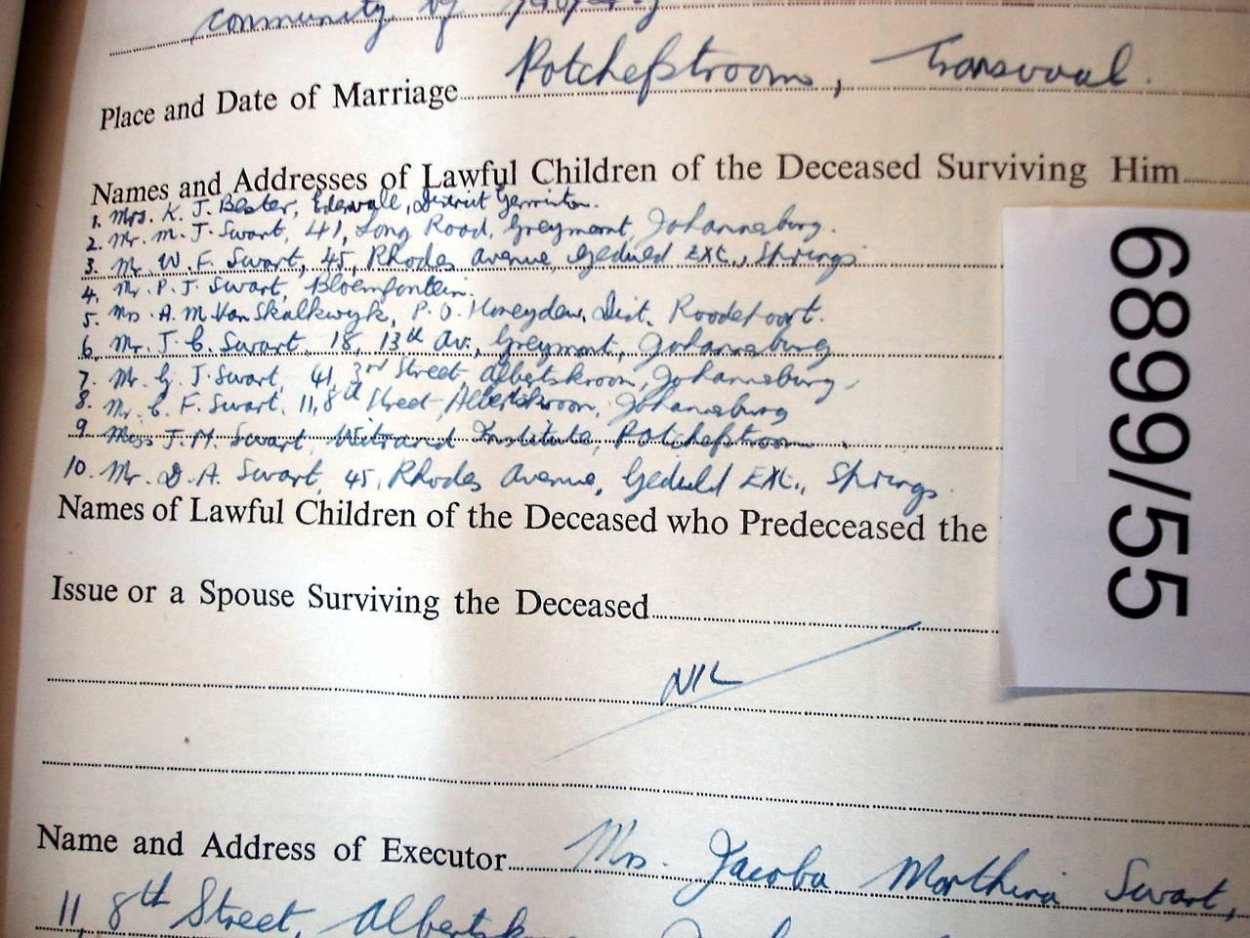 community of property
Place and Date of Marriage Potchefstroom, Transvaal.
Names and Addresses of Lawful Children of the Deceased Surviving Him
1. Mrs. K. J. Bester, Edenvale, District Germiston.
2. Mr. M. J. Swart, 41, Long Road, Greymont, Johannesburg.
3. Mr. W. F. Swart, 45, Rhodes Avenue, Geduld EXT., Springs
4. Mr. P. J. Swart, Bloemfontein.
5. Mrs. A. M. Van Skalkwyk, P.O. Honeydew, Dist. Roodepoort.
6. Mr. J. C. Swart, 18, 13th Av., Greymont, Johannesburg
7. Mr. G. J. Swart, 41, 3rd Street, Albertskroon, Johannesburg,
8. Mr. C. F. Swart, 11, 8th Street Albertskroon, Johannesburg
9. Miss J. M. Swart, Witrand Institute, Potchefstroom.
10. Mr. D. A. Swart, 45, Rhodes Avenue, Geduld EXT., Springs.
Names of Lawful Children of the Deceased who Predeceased the
Issue or a Spouse Surviving the Deceased
NIL
Name and Address of Executor Mrs. Jacoba Marthina Swart,
11, 8th Street, Albertsk
6899/55